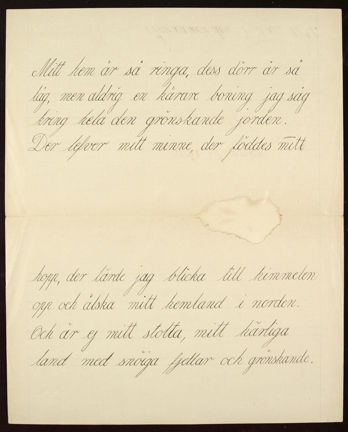 Mitt hem är så ringa, dess dörr är så
låg, men aldrig en kärare boning jag såg
kring hela den grönskande jorden.
Der lefver mitt minne, der föddes mitt
hopp, der lärde jag blicka till himmelen
opp och älska mitt hemland i norden.
Och är ej mitt stolta, mitt härliga
land med snöiga fjellar och grönskande.